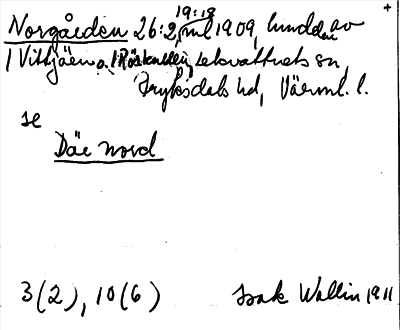 +
19:18
Norgården 26:2, ml 1909, hundden av
1 Vittjärn o. 1 Röskallen, Lekvattnets sn,
Fryksdals hd, Värml. l.
se
Där nord
3(2), 10(6) Isak Wallin 1911